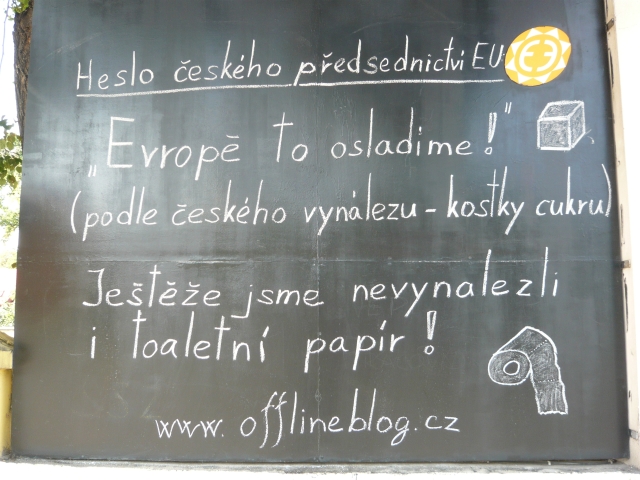 Heslo českého předsednictví EU:
„Evropě to osladíme!"
(podle českého vynálezu - kostky cukru)
Ještěže jsme nevynalezli
i toaletní papír!
www.offlineblog.cz